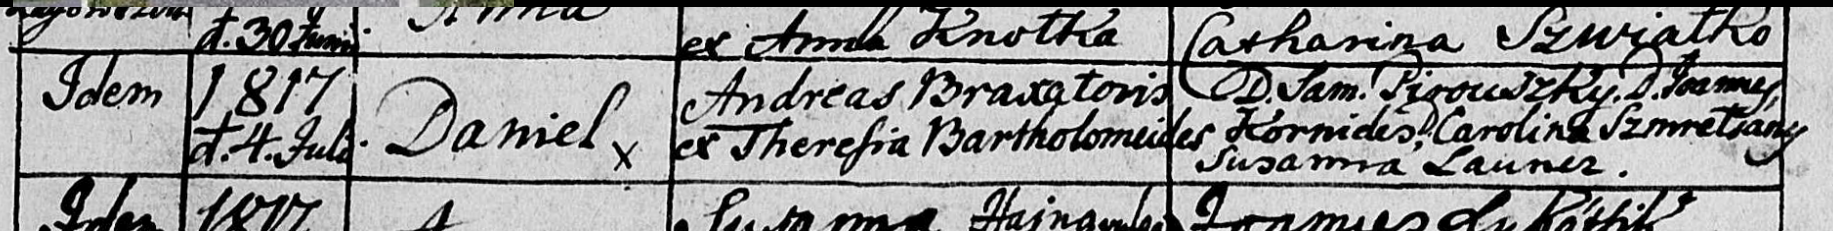 d. 30 Junii
ex Anna Knotka
Catharina Szwiatko
Idem
1817
d. 4. Juli.
Daniel x
Andreas Braxatoris
ex Theresia Bartholomeides
D. Sam. Pirouszky. D. Joannes
Kornides, Carolina Szmretsany
Susanna Launer.
Idem
1817
Susanna
Joannes